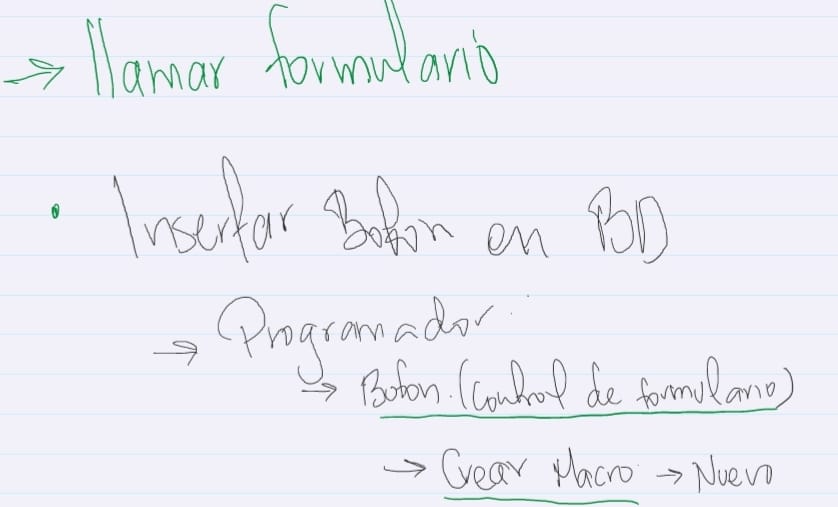 → llamar formulario
• Insertar Boton en BD
→ Programador
→ Boton. (Control de formulario)
→ Crear Macro → Nuevo